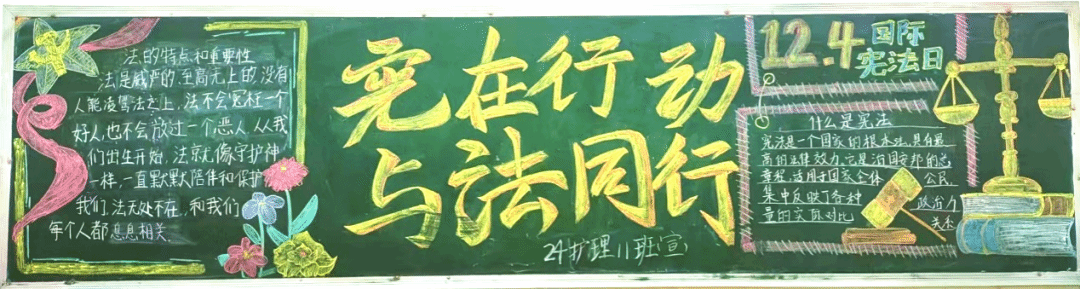 法的特点和重要性
法是威严的至高无上的没有
人能凌驾法之上,法不会冤枉一个
好人,也不会放过一个恶人 从我
们出生开始,法就像守护神
一样,一直默默陪伴和保护
我们,法无处不在,和我们
每个人都息息相关.
宪在行动
与法同行
24护理11班宣
12.4国际
宪法日
什么是宪法
宪法是一个国家的根本法,具有最
高的法律效力,它是治国安邦的总
章程,适用于国家全体 公民,
集中反映了各种 政治力
量的实质对比 关系